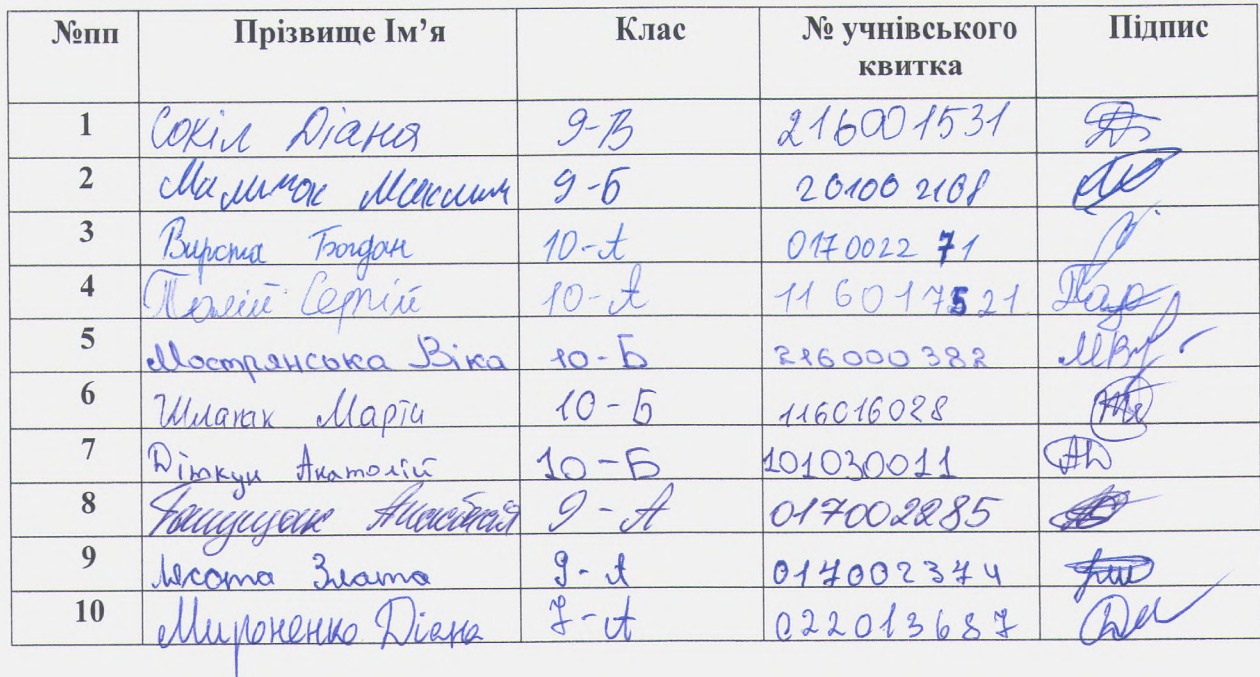 №пп Прізвище Ім’я Клас № учнівського квитка Підпис
1 Сокіл Діана 9-В 216001531
2 Максим 9-Б 201002108
3 Вирста Богдан 10-А 017002271
4 Палій Сергій 10-А 116017521
5 Мостянська Віка 10-Б 216000382
6 Шлапак Марта 10-Б 116016028
7 Анатолій 10-Б 101030011
8 Анастасія 9-А 017002285
9 Лясота Злата 9-А 017002374
10 Мироненко Діана 7-А 022013687